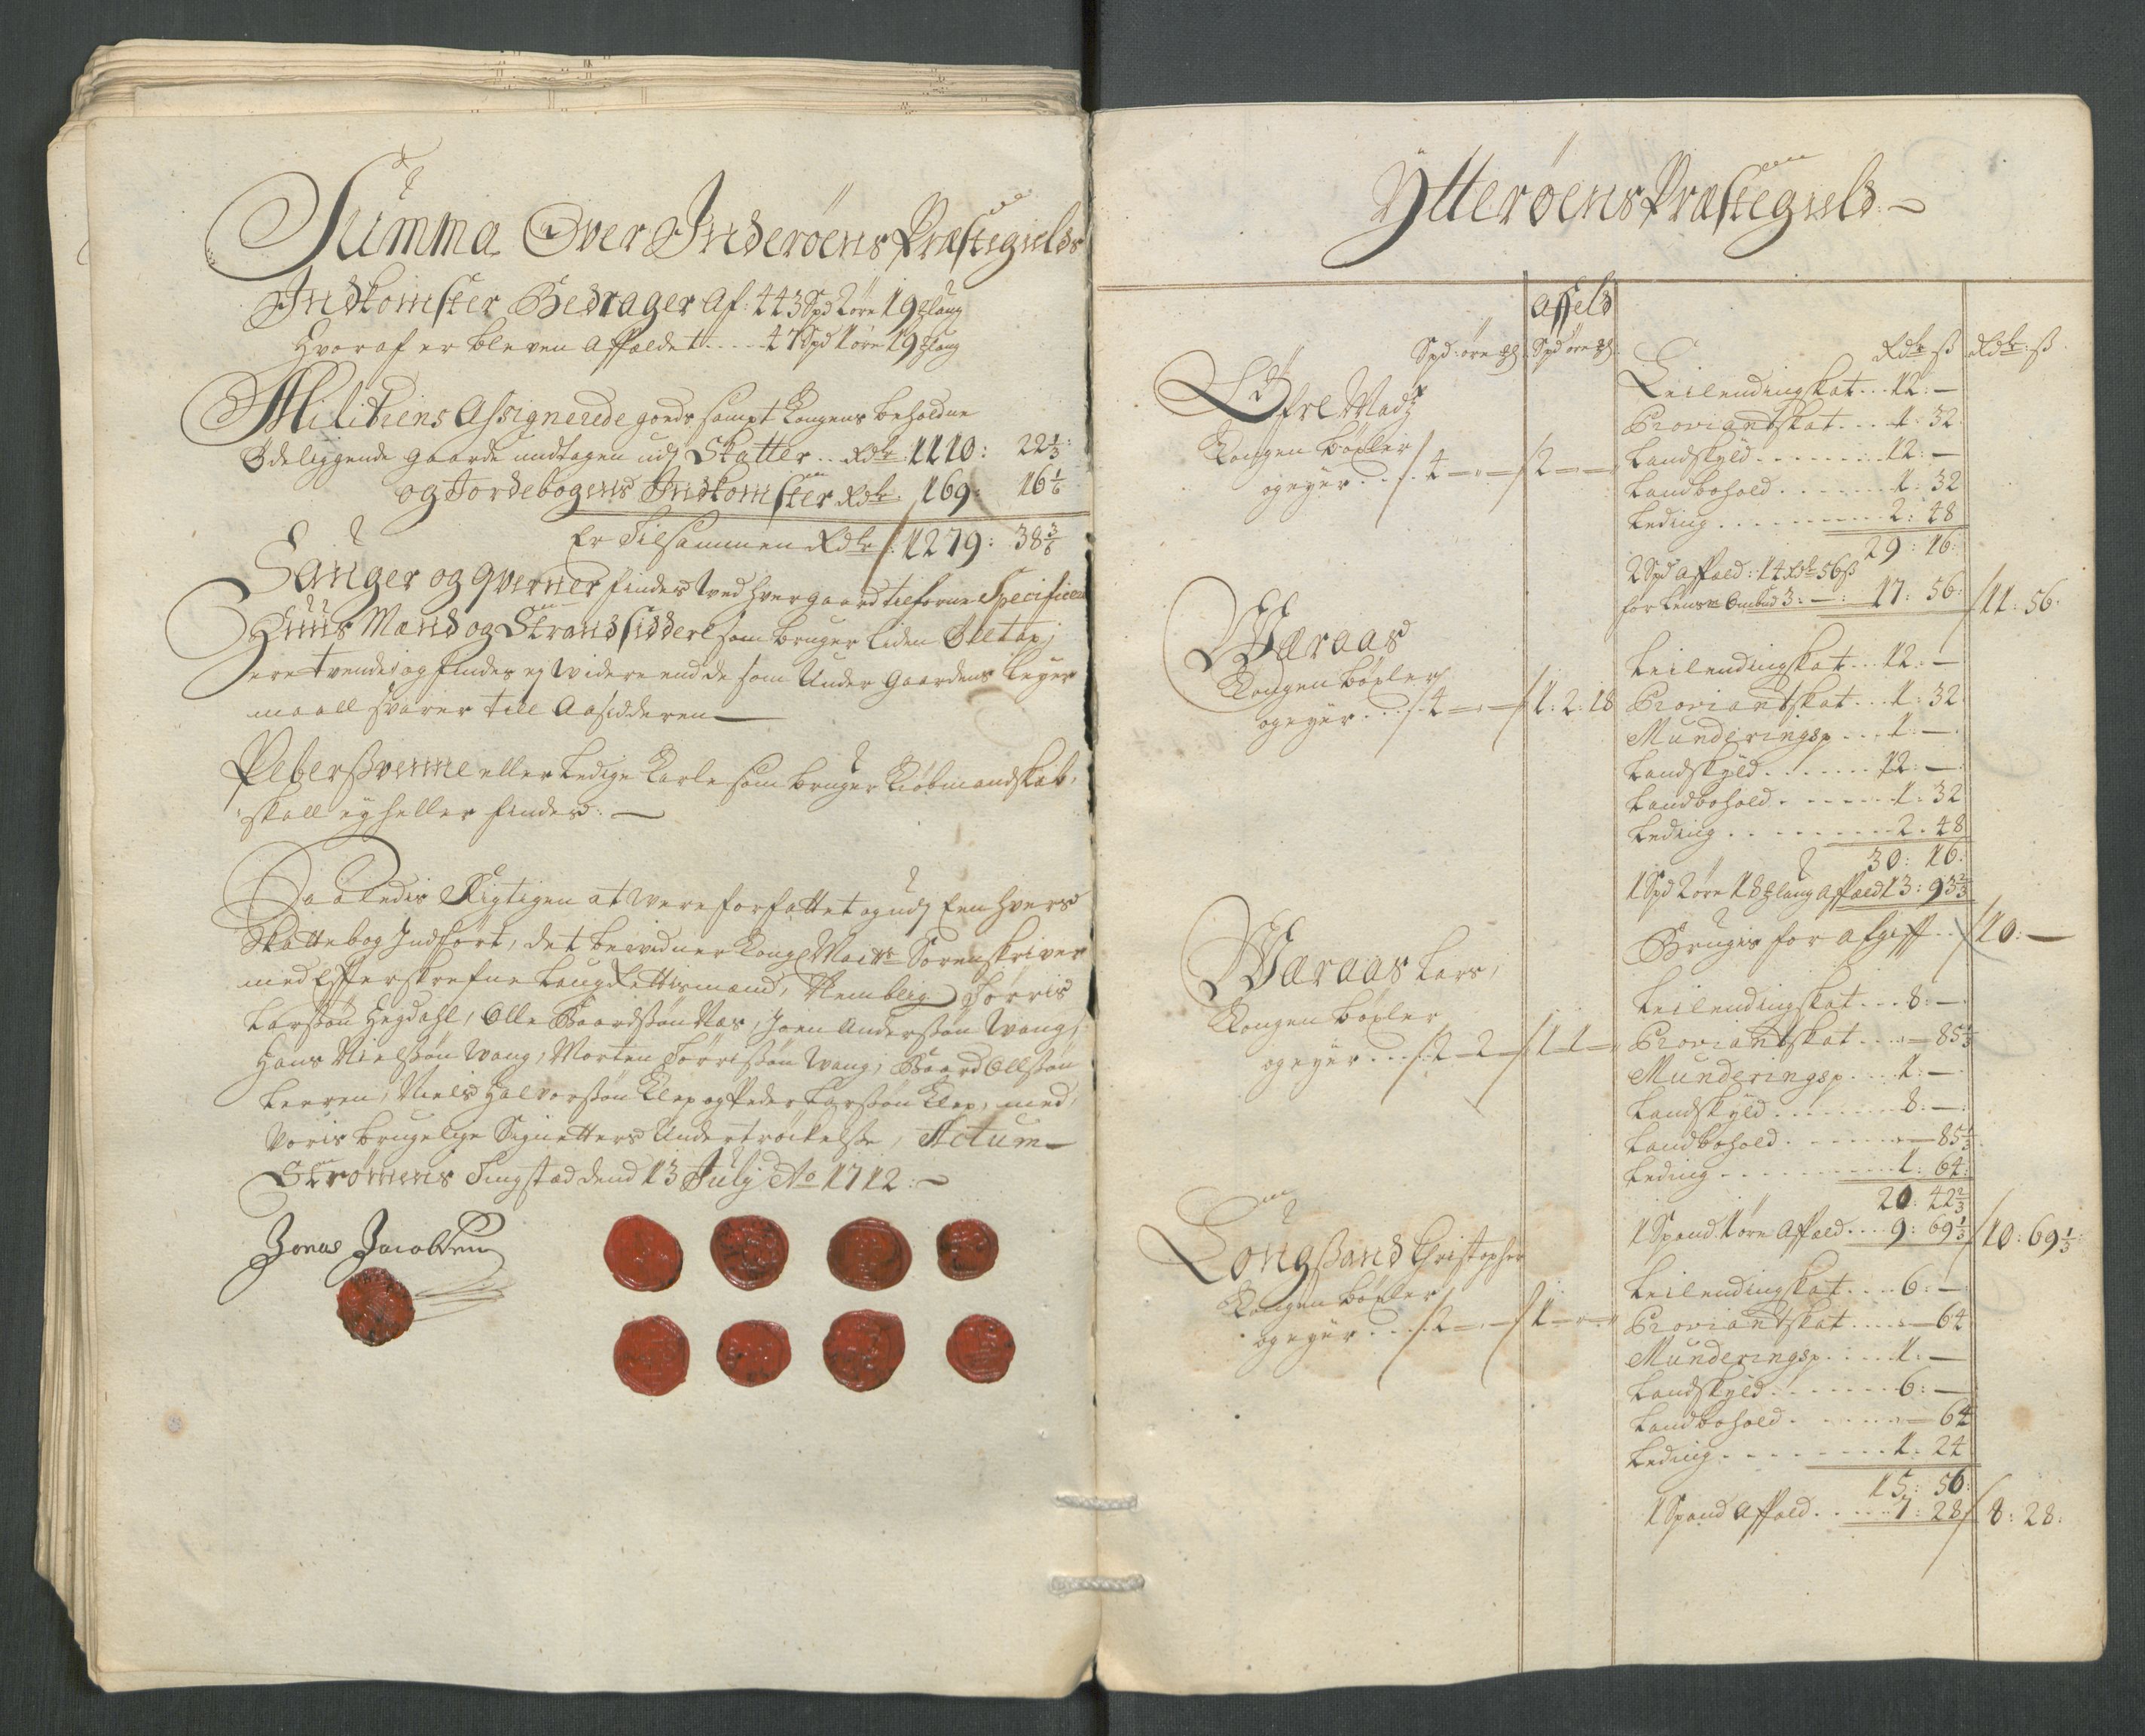 Summa Over Inderøens Præstegields
Indkomster Bedrager Af: 443 Spd 2 øre 19 ℔ laug
Hvoraf er bleven Affældet .... 47 Spd 1 øre 19 ℔ laug
Militiens Assignerede goeds sampt Kongens beholdne
Ødeliggende gaarde undtagen udj Skatter .. Rdlr. 1110: 22 1/3:
og Jordebogens Indkomster Rdlr. 169: 16 1/6
Er Tilsammen Rdlr /: 1279: 38 3/6
Sauger og qverner findes ved hver gaard tilforne Specificeret
Huus Mænd og Strandsiddere som bruger liden
ere tvende og findes ej widere end de som Under Gaardens leyer
maall svarer till Aasidderen —
Pebersvenne eller ledige Karle som bruger Kiøbmandskab,
skall ey heller findes: —
Saaledis Rigtigen at were forfattet og udj Een hvers
Skattebog Indført, det bewidner Kongl Maitts Sorenskriver
med efterskrefne Laug Rettismænd, Nemblig Sørris
Larssøn Hegdahl, Olle Baardssøn Næs, Joen Anderssøn Wang,
Hans Nielssøn Wang, Morten Torrissøn Wang, Baard Ollssøn
Leeren, Niels Halvorssøn Klep og Peder Larssøn Klep, med
voris brugelige Signetters Undertrøckelsse, Actum —
Strømens Tingstæd dend 13 July Ao 1712: —
Jonas Jacobsen
Ytterøens Præstegield: —
Affeld
Spd: øre ℔ Spd øre ℔ Rdlr ß Rdlr: ß
Øfre Wady
Kongen böxler
og eyer .... /4 — „ — /2 — „ —
Leilendingskat .. 12: —
Proviantskat ... 1: 32
Landskyld ....... 12: —
Landbohold ...... 1: 32
Leding .......... 2: 48
29: 16:
2 Spd affæld: 14 Rdlr 56 ß
for Lensm Ombud 3: —: 17: 56: /11: 56:
Waraas
Kongen böxler
og eyer .... /4 — „ — /1: 2: 18
Leilendingskat ... 12: —
Proviantskat ... 1: 32
Munderingsp ... 1: —
Landskyld ....... 12: —
Landbohold ...... 1: 32
Leding ......... 2: 48
30: 16:
1 Spd 2 øre 18 ℔ laug affæld 13: 93 2/3
Bruges for afgift .. /10: —
Waraas Lars,
Kongen böxler
og eyer ... /2 — 2 — /1 1 —
Leilendingskat ... 8: —
Proviantskat ... „ — 85 1/3
Munderingsp ... 1: —
Landskyld ....... 8: —
Landbohold ...... — 85 1/3
Leding ......... 1: 64:
20: 42 2/3
1 Spand 1 øre Affæld ... 9: 69 1/3 /10: 69 1/3:
Longsand Christopher
Kongen böxler
og eyer .... /2 — „ — /1 — „ —
Leilendingskat .... 6: —
Proviantskat .... „ — 64
Munderingsp .... 1: —
Landskyld ....... 6: —
Landbohold ...... — 64
Leding ......... 1: 24
15: 56:
1 Spand Affæld ..... 7: 28 /8: 28: